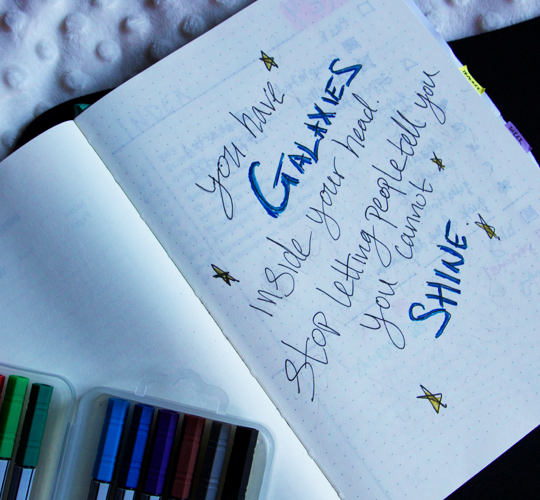 you have
GALAXIES
inside your head.
Stop letting people tell you
you cannot
SHINE.